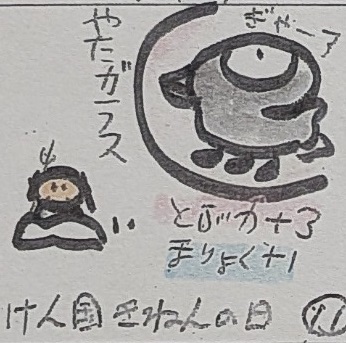 やたガラス
ぎゃーす
とうか+3
まりょく+1
けん国きねんの日 11